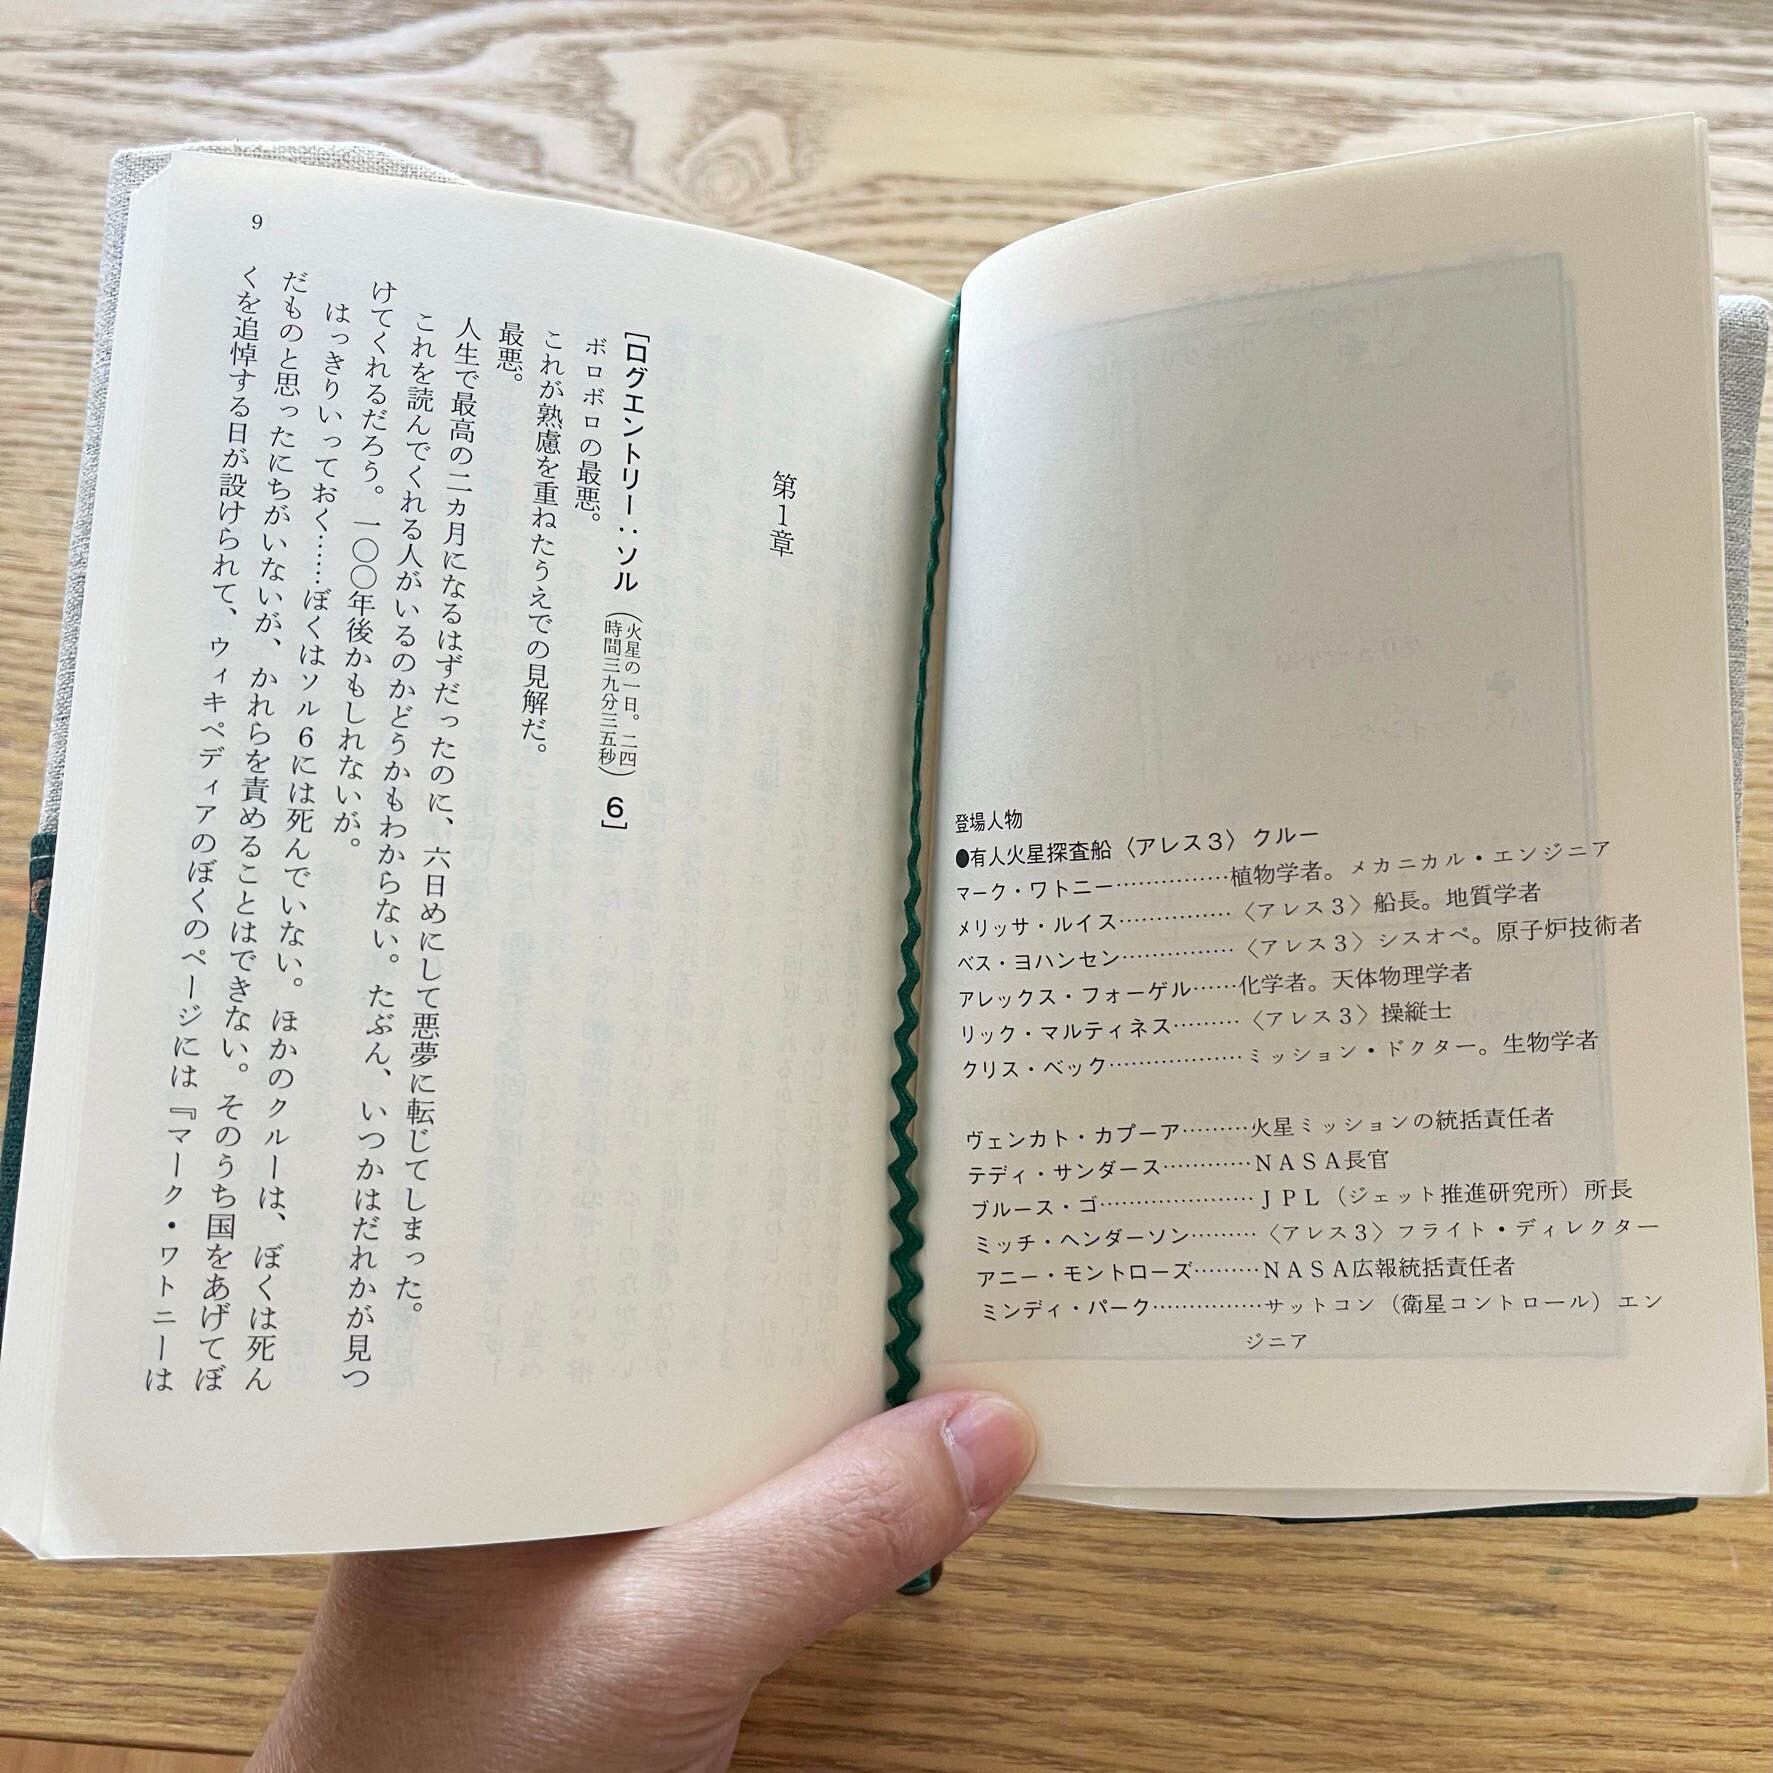 登場人物
●有人火星探査船〈アレス3〉クルー
マーク・ワトニー……………植物学者。メカニカル・エンジニア
メリッサ・ルイス……………〈アレス3〉船長。地質学者
ベス・ヨハンセン……………〈アレス3〉シスオペ。原子炉技術者
アレックス・フォーゲル……化学者。天体物理学者
リック・マルティネス………〈アレス3〉操縦士
クリス・ベック………………ミッション・ドクター。生物学者
ヴェンカト・カプーア………火星ミッションの統括責任者
テディ・サンダース…………NASA長官
ブルース・ゴ…………………JPL（ジェット推進研究所）所長
ミッチ・ヘンダーソン………〈アレス3〉フライト・ディレクター
アニー・モントローズ………NASA広報統括責任者
ミンディ・パーク……………サットコン（衛星コントロール）エン
ジニア
第1章
［ログエントリー：ソル（火星の一日。二四時間三九分三五秒）6］
ボロボロの最悪。
これが熟慮を重ねたうえでの見解だ。
最悪。
人生で最高の二カ月になるはずだったのに、六日めにして悪夢に転じてしまった。
これを読んでくれる人がいるのかどうかもわからない。たぶん、いつかはだれかが見つ
けてくれるだろう。一〇〇年後かもしれないが。
はっきりいっておく……ぼくはソル6には死んでいない。ほかのクルーは、ぼくは死ん
だものと思ったにちがいないが、かれらを責めることはできない。そのうち国をあげてぼ
くを追悼する日が設けられて、ウィキペディアのぼくのページには『マーク・ワトニーは
9